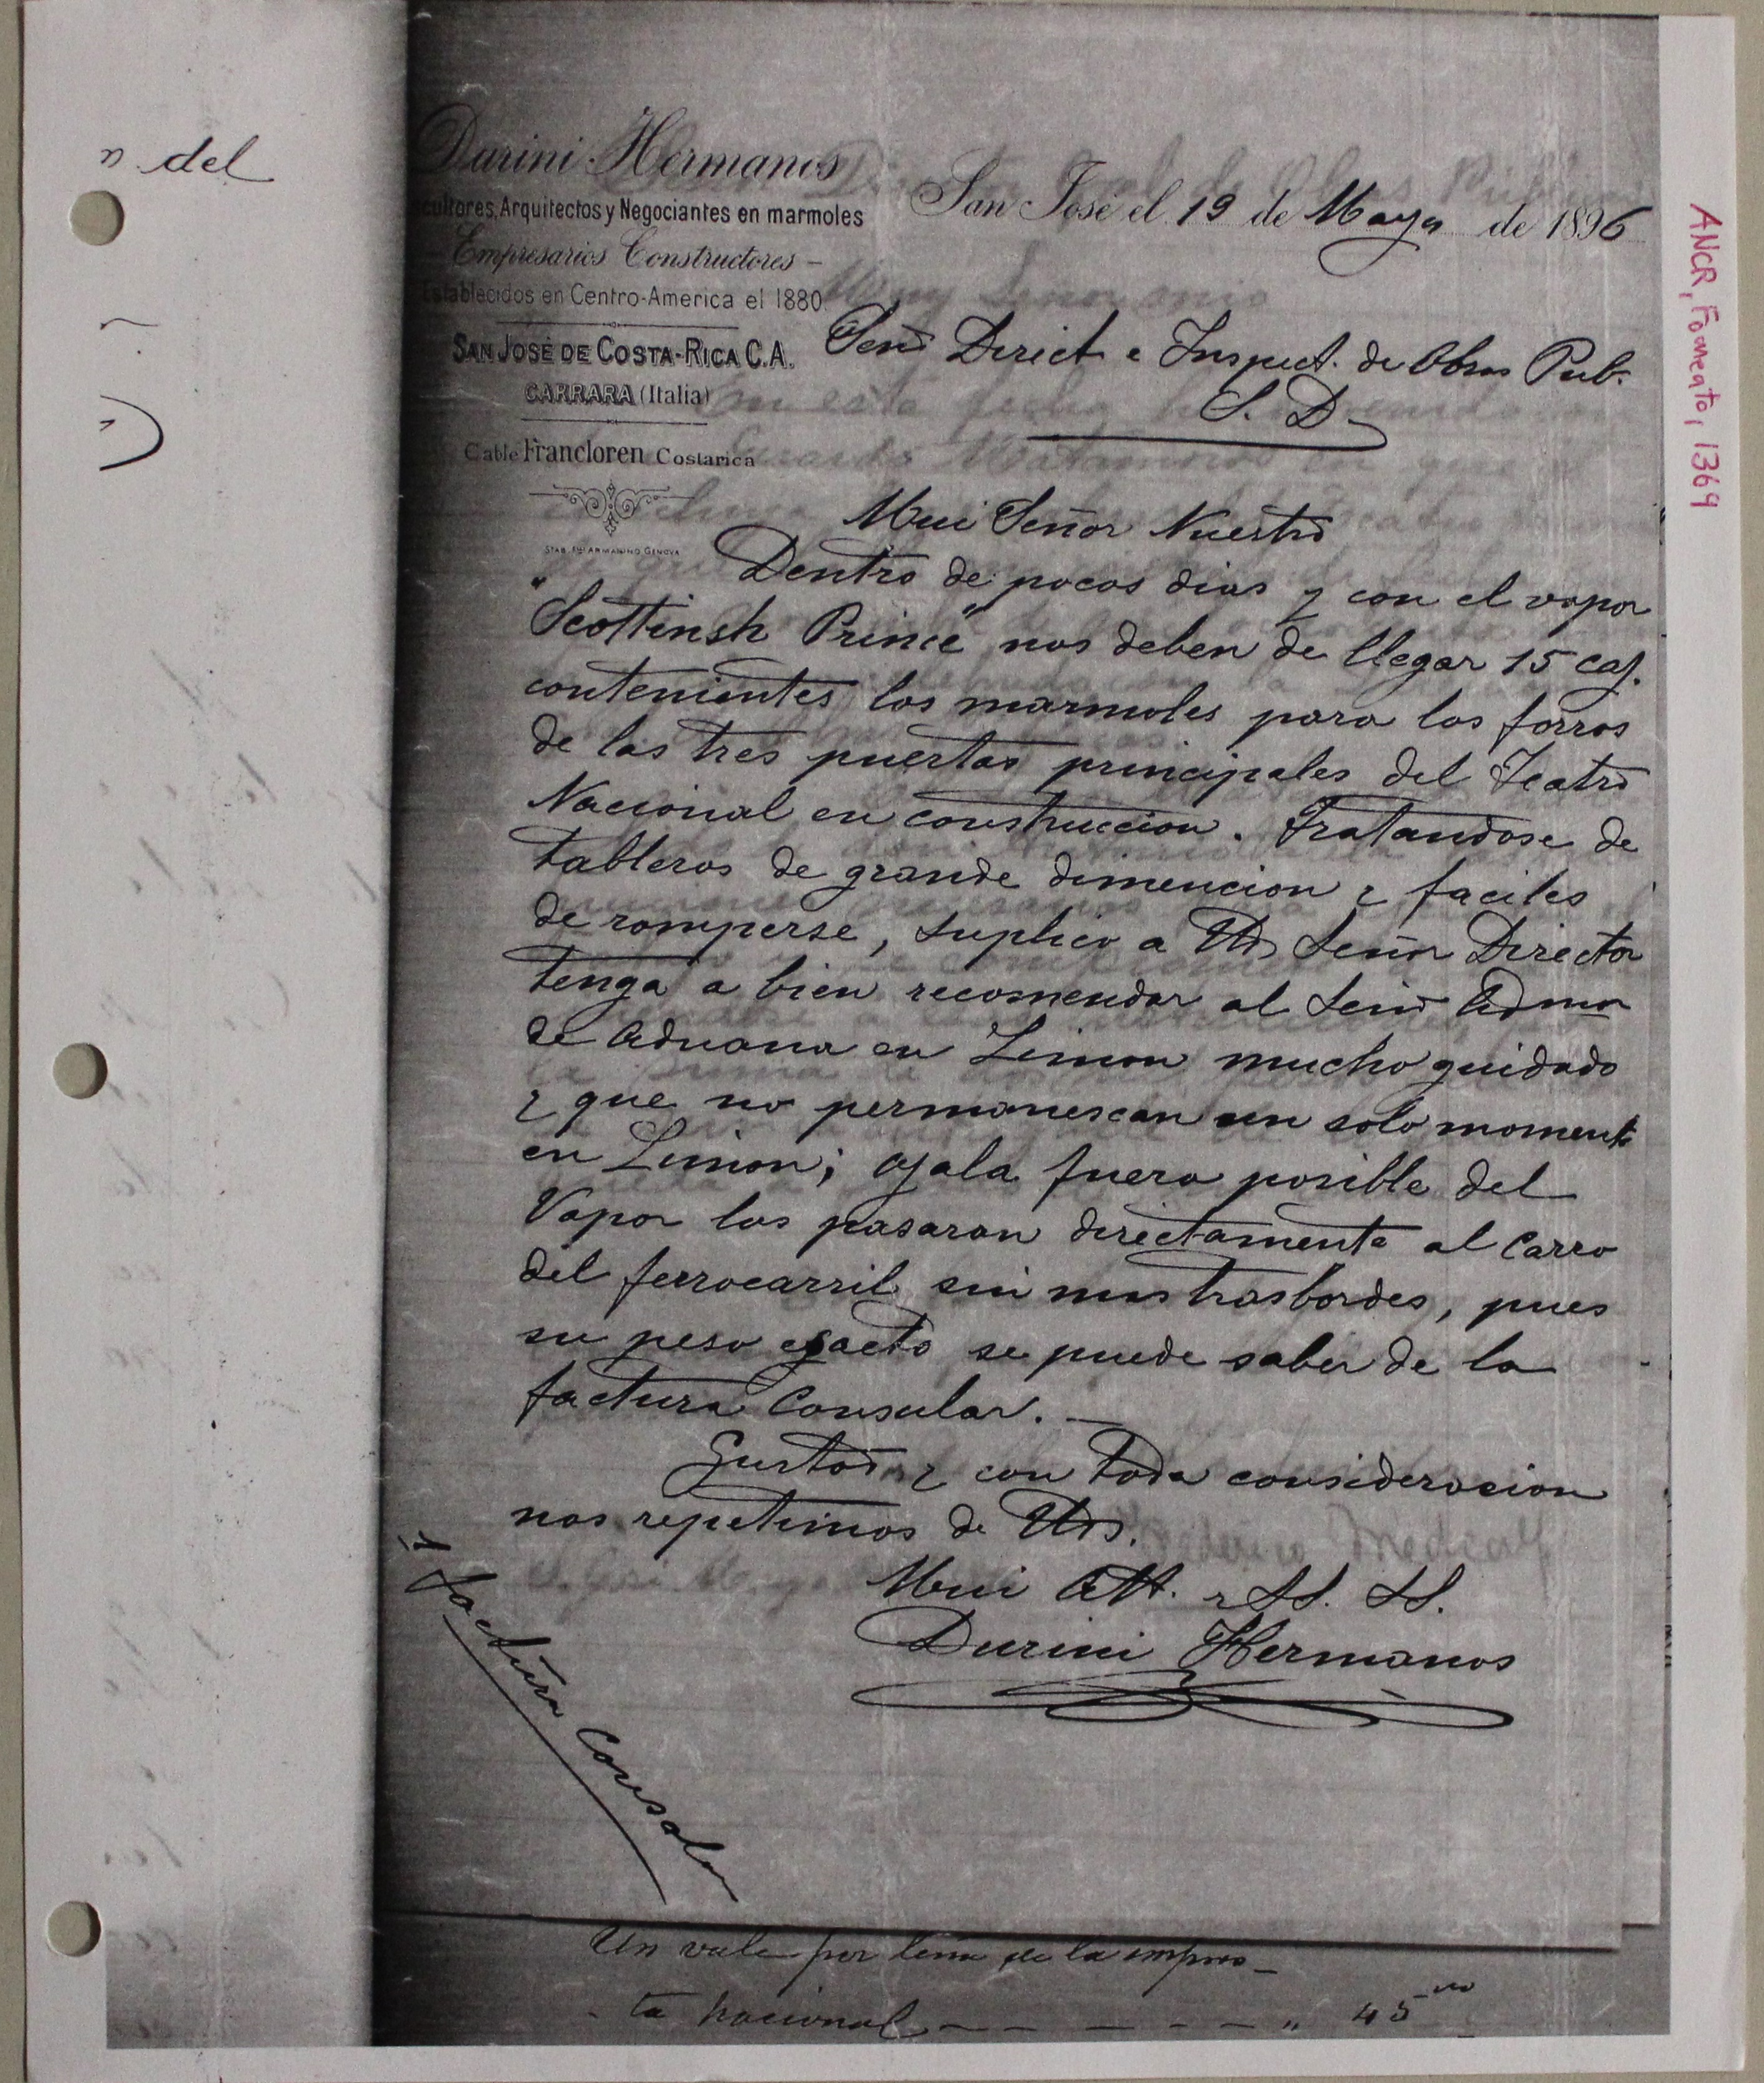 n. del
Durini Hermanos
cultores, Arquitectos y Negociantes en marmoles
Empresarios Constructores -
Establecidos en Centro-America el 1880
SAN JOSÉ DE COSTA-RICA C.A.
CARRARA (Italia)
Cable Francloren Costarica
STAB. ARMANINO GENOVA
San José el 19 de Mayo de 1896
Señr Direct. e Inspect. de Obras Pub.
S. D.
ANCR, Fomento, 1369
Mui Señor Nuestro
Dentro de pocos dias y con el vapor
"Scottinsh Prince" nos deben de llegar 15 caj.
contenientes los marmoles para los forros
de las tres puertas principales del Teatro
Nacional en construccion. Tratandose de
tableros de grande dimencion y faciles
de romperse, suplico a Ud Señor Director
tenga a bien recomendar al Señr Admor
de Aduana en Limon mucho guidado
y que no permanescan un solo momento
en Limon; ojala fuera posible del
Vapor los pasaran directamente al Carro
del ferrocarril sin mas trasbordes, pues
su peso esacto se puede saber de la
factura Consular. —
Gustosos y con toda consideracion
nos repetimos de Uds.
Mui Att. y SS. SS.
Durini Hermanos
1 factura Consular
Un vale por leña de la impren-
ta nacional - - - - - - " 45